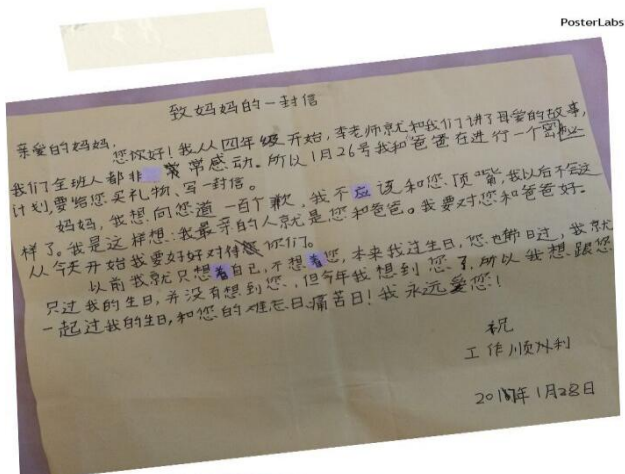 PosterLabs
致妈妈的一封信
亲爱的妈妈：
您你好！我从四年级开始，李老师就和我们讲了母爱的故事，
我们全班人都非常感动。所以1月26号我和爸爸在进行一个密
计划，要给您买礼物、写一封信。
妈妈，我想向您道一百个歉，我不应该和您顶嘴，我以后不会这
样了。我是这样想：我最亲的人就是您和爸爸。我要对您和爸爸好。
从今天开始我要好好对待你们。
以前我就只想着自己，不想着您，本来我过生日，您也那日过，我就
只过我的生日，并没有想到您，但今年我想到您了，所以我想跟您
一起过我的生日，和您的难忘日，痛苦日！我永远爱您！
祝
工作顺利
年1月28日